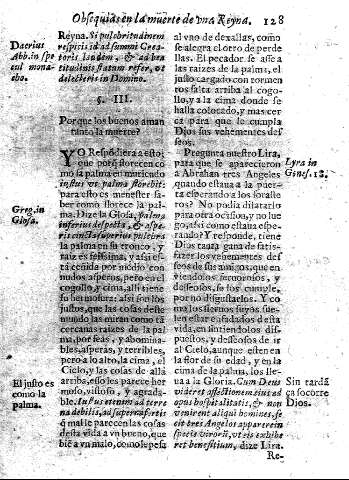 Obsequias en la muerte de vna Reyna. 128
Dacrius
Abb. in spe
cul. mona-
cho.
Reyna. Si pulchritudinem
respicis id ad summi Crea-
toris laudem, & ad bea
titudinis statum refer, vt
delecteris in Domino.
§. III.
Por que los buenos aman
tanto la muerte?
YO Respõdiera a esto;
que porq̃ florescen co
mo la palma en muriendo
iustus vt palma florebit:
para esto es menester sa-
ber como florece la pal-
ma. Dize la Glosa, palma
inferius despecta, & aspe-
ris cincta superius pulcra:
la palma en su tronco, y
raiz es feissima, y assi es-
tà cenida por medio con
nudos asperos, pero en el
cogollo, y cima, alli tiene
su hermosura: assi son los
justos, que las cosas deste
mundo las miran como si
cercanas raizes de la pal
ma, por feas, y abomina-
bles, asperas, y terribles,
pero a lo alto, la cima, el
Cielo, y las cosas de allà
arriba, esso les parece her
moso, vistoso, y agrada-
ble. Iustus etenim ad terre
na debilis, ad superna fortis
q̃ mal le parecen las cosas
desta vida a vn bueno, que
biẽ a vn malo, como le pesa
Greg. in
Glosa.
El justo es
como la
palma.
al vno de dexallas, como
se alegra el otro de perde
llas. El pecador se asse a
las raizes de la palma, el
justo cargado con tormen
tos salta arriba al cogo-
llo, y a la cima donde se
halla colocado, y mas cer
ca para que le cumpla
Dios sus vehementes des
seos.
Pregunta nuestro Lira,
para que se aparecieron
a Abrahan tres Angeles
quando estaua a la puer-
ta esperando a los foraste
ros? No podia dilatarlo
para otra ocasion, y no lue
go, assi como estaua espe-
rando? Y responde, tiene
Dios tanta gana de satis-
fazer los vehementes des
seos de sus amigos, que en
viendolos fervorosos, y
desseosos, se los cumple,
por no disgustarlos. Y co
mo los siervos suyos sue-
len estar ensadados de esta
vida, en sintiendolos dis-
puestos, y desseosos de ir
al Cielo, aunque esten en
la flor de su edad, y en la
cima de la palma, los lle-
ua a la Gloria. Cum Deus
videret affectionem eius ad
opus hospitalitatis, & non
venirent aliqui homines, fe
cit tres Angelos apparere in
specie virorũ, vt eis exhibe
ret beneficium, dize Lira.
Re-
Lyra in
Gines. 18.
Sin tardã
ça socorre
Dios.